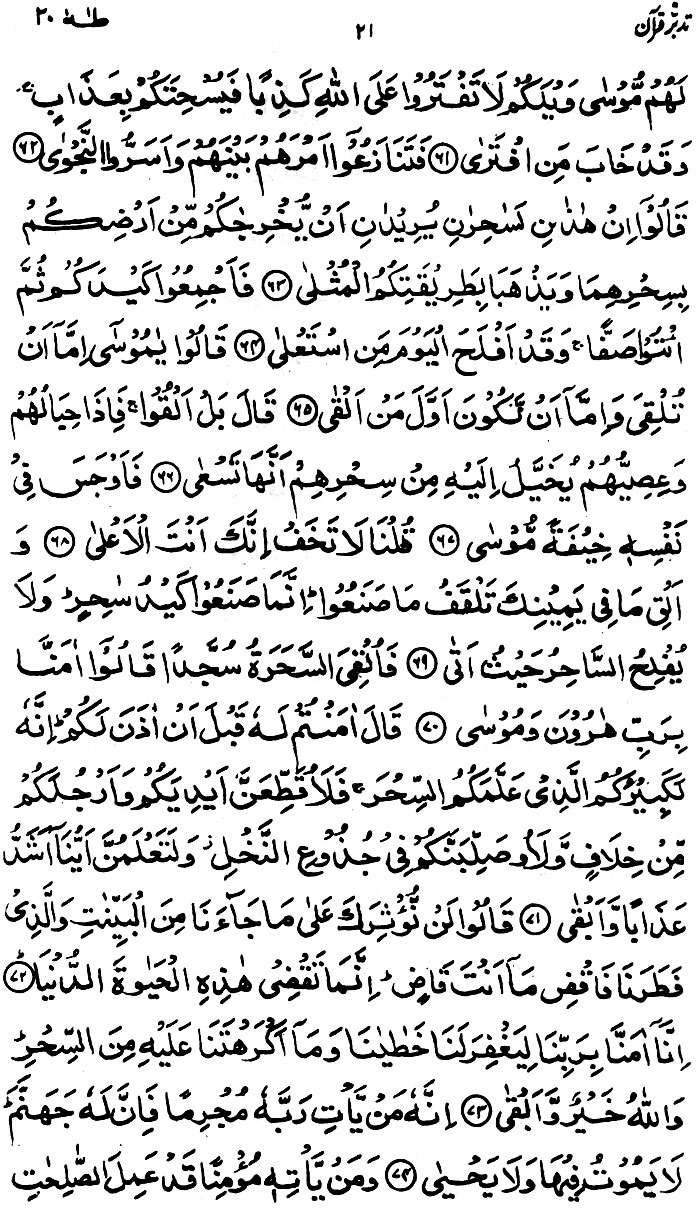 تدبرِ قرآن ۲۱ طٰہٰ ۲۰
لَهُمْ مُّوْسٰى وَيْلَكُمْ لَا تَفْتَرُوْا عَلَى اللّٰهِ كَذِبًا فَيُسْحِتَكُمْ بِعَذَابٍ ۚ
وَقَدْ خَابَ مَنِ افْتَرٰى ﴿۶۱﴾ فَتَنَازَعُوْٓا اَمْرَهُمْ بَيْنَهُمْ وَاَسَرُّوا النَّجْوٰى ﴿۶۲﴾
قَالُوْٓا اِنْ هٰذٰىنِ لَسٰحِرٰنِ يُرِيْدٰنِ اَنْ يُّخْرِجٰكُمْ مِّنْ اَرْضِكُمْ
بِسِحْرِهِمَا وَيَذْهَبَا بِطَرِيْقَتِكُمُ الْمُثْلٰى ﴿۶۳﴾ فَاَجْمِعُوْا كَيْدَكُمْ ثُمَّ
ائْتُوْا صَفًّا ۚ وَقَدْ اَفْلَحَ الْيَوْمَ مَنِ اسْتَعْلٰى ﴿۶۴﴾ قَالُوْا يٰمُوْسٰٓى اِمَّآ اَنْ
تُلْقِىَ وَاِمَّآ اَنْ نَّكُوْنَ اَوَّلَ مَنْ اَلْقٰى ﴿۶۵﴾ قَالَ بَلْ اَلْقُوْا ۚ فَاِذَا حِبَالُهُمْ
وَعِصِيُّهُمْ يُخَيَّلُ اِلَيْهِ مِنْ سِحْرِهِمْ اَنَّهَا تَسْعٰى ﴿۶۶﴾ فَاَوْجَسَ فِىْ
نَفْسِهٖ خِيْفَةً مُّوْسٰى ﴿۶۷﴾ قُلْنَا لَا تَخَفْ اِنَّكَ اَنْتَ الْاَعْلٰى ﴿۶۸﴾ وَ
اَلْقِ مَا فِىْ يَمِيْنِكَ تَلْقَفْ مَا صَنَعُوْا ؕ اِنَّمَا صَنَعُوْا كَيْدُ سٰحِرٍ ؕ وَلَا
يُفْلِحُ السَّاحِرُ حَيْثُ اَتٰى ﴿۶۹﴾ فَاُلْقِىَ السَّحَرَةُ سُجَّدًا قَالُوْٓا اٰمَنَّا
بِرَبِّ هٰرُوْنَ وَمُوْسٰى ﴿۷۰﴾ قَالَ اٰمَنْتُمْ لَهٗ قَبْلَ اَنْ اٰذَنَ لَكُمْ ؕ اِنَّهٗ
لَكَبِيْرُكُمُ الَّذِىْ عَلَّمَكُمُ السِّحْرَ ۚ فَلَاُقَطِّعَنَّ اَيْدِيَكُمْ وَاَرْجُلَكُمْ
مِّنْ خِلَافٍ وَّلَاُوصَلِّبَنَّكُمْ فِىْ جُذُوْعِ النَّخْلِ ۫ وَلَتَعْلَمُنَّ اَيُّنَآ اَشَدُّ
عَذَابًا وَّاَبْقٰى ﴿۷۱﴾ قَالُوْا لَنْ نُّؤْثِرَكَ عَلٰى مَا جَآءَنَا مِنَ الْبَيِّنٰتِ وَالَّذِىْ
فَطَرَنَا فَاقْضِ مَآ اَنْتَ قَاضٍ ؕ اِنَّمَا تَقْضِىْ هٰذِهِ الْحَيٰوةَ الدُّنْيَا ؕ ﴿۷۲﴾
اِنَّآ اٰمَنَّا بِرَبِّنَا لِيَغْفِرَ لَنَا خَطٰيٰنَا وَمَآ اَكْرَهْتَنَا عَلَيْهِ مِنَ السِّحْرِ ؕ
وَاللّٰهُ خَيْرٌ وَّاَبْقٰى ﴿۷۳﴾ اِنَّهٗ مَنْ يَّاْتِ رَبَّهٗ مُجْرِمًا فَاِنَّ لَهٗ جَهَنَّمَ ؕ
لَا يَمُوْتُ فِيْهَا وَلَا يَحْيٰى ﴿۷۴﴾ وَمَنْ يَّاْتِهٖ مُؤْمِنًا قَدْ عَمِلَ الصّٰلِحٰتِ